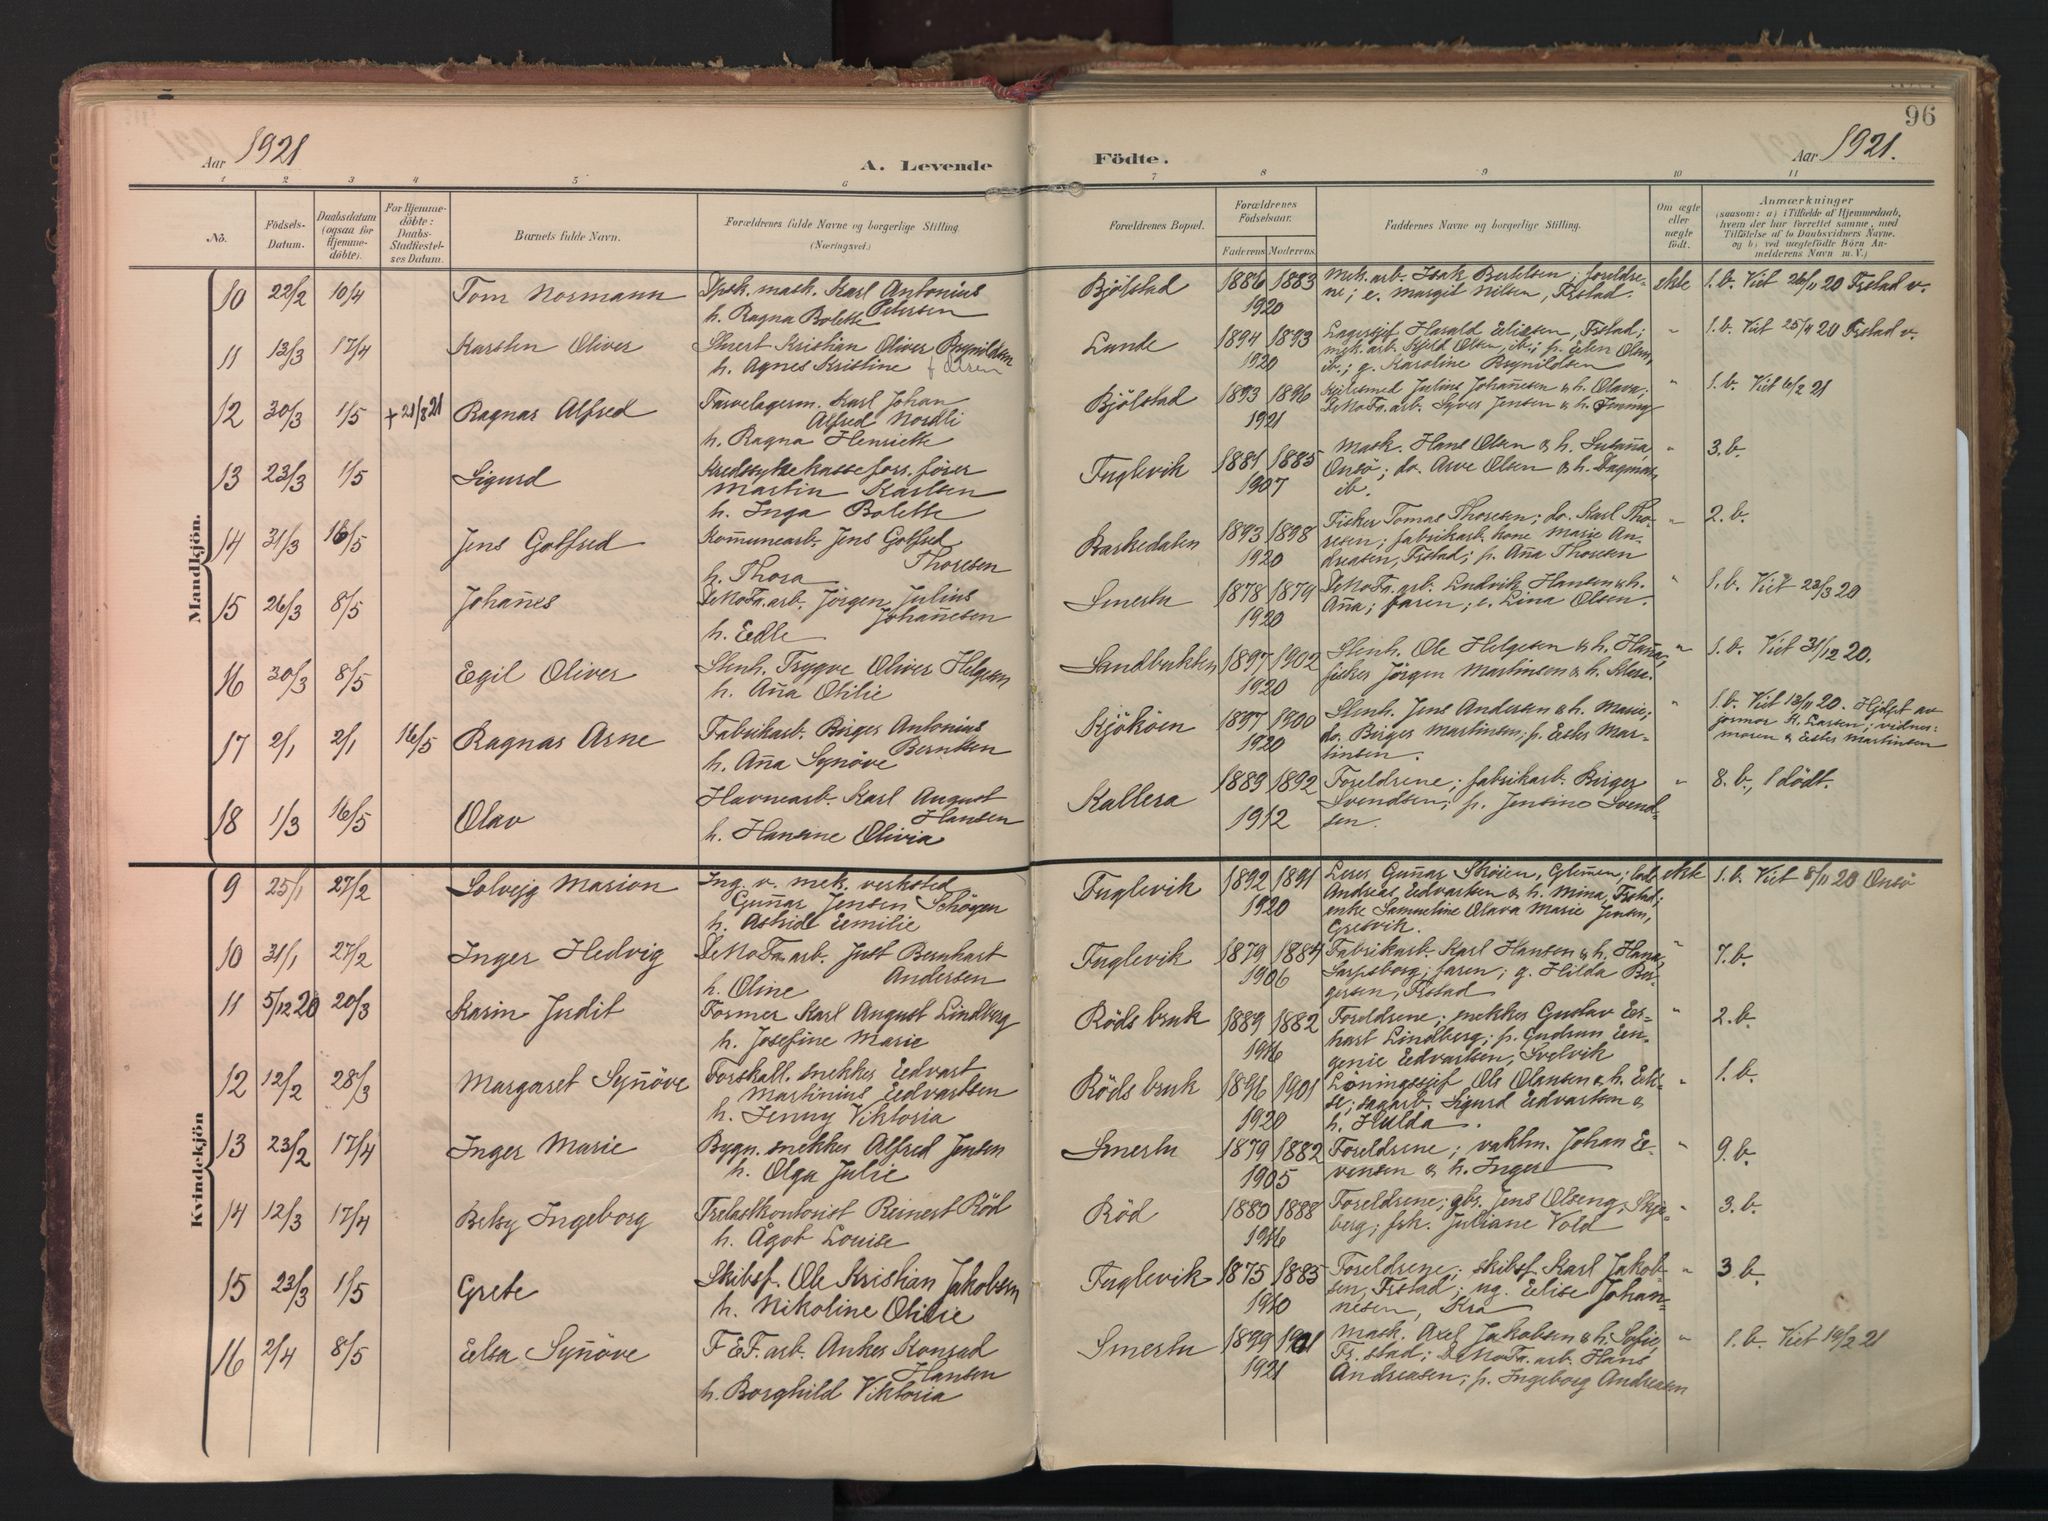 96
Aar 1921
A. Levende Födte.
Aar 1921.
1 2 3 4 5 6 7 8 9 10 11
No.
Födsels-Datum.
Daabsdatum (ogsaa for Hjemme-döbte).
For Hjemme-döbte: Daabs-Stadfæstel-ses Datum.
Barnets fulde Navn.
Forældrenes fulde Navne og borgerlige Stilling. (Næringsvei.)
Forældrenes Bopæl.
Forældrenes Födselsaar.
Faderens Moderens.
Faddernes Navne og borgerlige Stilling.
Om ægte eller uægte födt.
Anmærkninger (saasom: a) i Tilfælde af Hjemmedaab, hvem der har forrettet samme, med Tilföielse af to Daabsvidners Navne, og b) ved uægtefödte Börn An-melderens Navn m. V.)
Mandkjön.
10 22/2 10/4 Tom Normann
mask. Karl Antonius Petersen
h. Ragna Bolette
Bjölstad 1886 1883
1920
Mek. arb. Isak Bertelsen; foreldre-
ne; e. Margit Nilsen, Frstad.
ekte 1. b. Viet 26/11 20 Frstad v.
11 13/3 17/4 Karsten Oliver
Kristian Oliver Brynildsen
h. Agnes Kristine f. Olsen
Lunde 1894 1893
1920
Lagersjef Harald Eliassen, Frstad;
mek. arb. Kjeld Olsen, ib.; p. Ellen Olsen,
ib.; g. Karoline Brynildsen
" 1. b. Viet 25/4 20 Frstad v.
12 30/3 1/5 + 21/8 21 Ragnar Alfred
Farvelagerm. Karl Johan
Alfred Nordli
h. Ragna Henriette
Bjölstad 1893 1896
1921
Kjelesmed Julius Johan̄esen & h. Olava;
DeNoFa. arb. Syver Jensen & h. Jenny
" 1. b. Viet 6/2 21
13 23/3 1/5 Sigurd
Kredssykekassefor. förer
Martin Karlsen
h. Inga Bolette
Fuglevik 1881 1885
1907
Mask. Hans Olsen & h. Susan̄a,
Onsö; do. Arve Olsen & h. Dagmar,
ib.
" 3. b.
14 31/3 16/5 Jens Golfred
Kom̄unearb. Jens Golfred
Thoresen
h. Thora
Barkedalen 1893 1898
1920
Fisker Tomas Thoresen; do. Karl Tho-
resen; fabrikarb. kone Marie An-
dreasen, Frstad; p. An̄a Thoresen
" 2. b.
15 26/3 8/5 Johan̄es
DeNoFa. arb. Jörgen Julius
Johan̄esen
h. Edle
Smertu 1878 1879
1920
DeNoFa. arb. Ludvik Hansen & h.
An̄a; faren; e. Lina Olsen.
" 1. b. Viet 23/3 20
16 30/3 8/5 Egil Oliver
Stenh. Trygve Oliver Helgesen
h. An̄a Otilie
Sandbukten 1897 1902
1920
Stenh. Ole Helgesen & h. Han̄a;
fisker Jörgen Martinsen & h. Klara.
" 1. b. Viet 31/12 20.
17 2/1 2/1 16/5 Ragnar Arne
Fabrikarb. Birger Antonius
Berntsen
h. An̄a Synöve
Kjököen 1897 1900
1920
Stenh. Jens Andersen & h. Marie;
do. Birger Martinsen; p. Ester Mar-
tinsen.
" 1. b. Viet 13/11 20. Hjdöpt av
jormor K. Larsen; vidner:
moren & Ester Martinsen
18 1/3 16/5 Olav
Havnearb. Karl August
Hansen
h. Hansine Olivia
Kallera 1889 1892
1912
Foreldrene; fabrikarb. Birger
Svendsen; p. Jensine Svend-
sen.
" 8. b., 1 dödt.
Kvindekjön
9 25/1 27/2 Solvejg Marion
Ing. v. mek. verksted
Gun̄ar Jensen Schöyen
h. Astrid Emilie
Fuglevik 1892 1891
1920
Lerer Gun̄ar Sköien, Glem̄en; lods
Andreas Edvartsen & h. Mina, Frstad;
enke Samueline Olava Marie Jensen,
Gresvik.
ekte 1. b. Viet 8/11 20 Onsö
10 31/1 27/2 Inger Hedvig
DeNoFa. arb. Just Bernhart
Andersen
h. Oline
Fuglevik 1879 1884
1906
Fabrikarb. Karl Hansen & h. Han̄a,
Sarpsborg; faren; g. Hilda Bir-
gersen, Frstad
" 7. b.
11 5/12 20 20/3 Karin Judit
Former Karl August Lindberg
h. Josefine Marie
Röds bruk 1889 1882
1916
Foreldrene; snekker Gustav Ed-
hart Lindberg; p. Gudrun Eu-
genie Edvartsen, Svelvik
" 2. b.
12 12/2 28/3 Margaret Syn̄öve
Forskall. snekker Edvart
Martinius Edvartsen
h. Jenny Viktoria
Röds bruk 1896 1901
1920
Lönningssjef Ole Olausen & h. Eli-
se; sagarb. Sigurd Edvartsen &
h. Hulda.
" 1. b.
13 23/2 17/4 Inger Marie
Bygn. snekker Alfred Jensen
h. Olga Julie
Smertu 1879 1882
1905
Foreldrene; vaktm. Johan E-
vensen & h. Inger
" 9. b.
14 12/3 17/4 Betzy Ingeborg
Trelastkontorist Reinert Röd
h. Ågot Louise
Röd 1880 1888
1916
Foreldrene; gbr. Jens Olseng, Skje-
berg; frk. Juliane Vold
" 3. b.
15 23/3 1/5 Grete
Skibsf. Ole Kristian Jakobsen
h. Nikoline Otilie
Fuglevik 1875 1885
1910
Foreldrene; skibsf. Karl Jakob-
sen, Frstad; ug. Elise Johan-
nesen, Kra
" 3 b.
16 2/4 8/5 Elsa Syn̄öve
F E F. arb. Anker Konrad
Hansen
h. Borghild Viktoria
Smertu 1899 1901
1921
Mask. Axel Jakobsen & h. Sofie,
Fr. stad; DeNoFa. arb. Hans
Andreasen; p. Ingeborg Andreasen
" 1. b. Viet 19/2 21